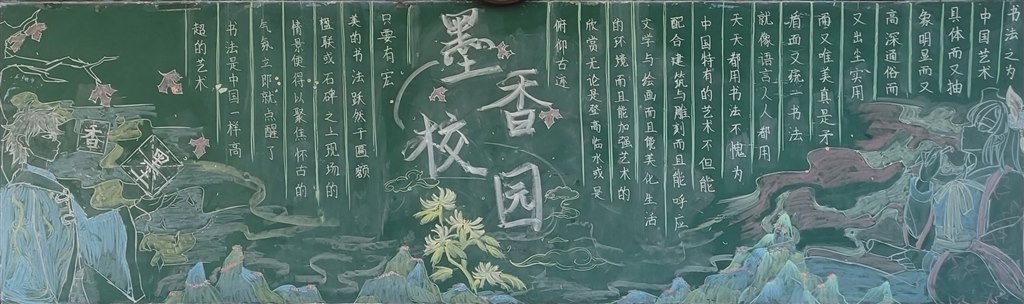 书法之为
中国艺术
具体而又抽
象明显而又
高深通俗而
又出尘实用
而又唯美真是矛
盾而又统一书法
就像语言人人都用
天天都用书法不愧为
中国特有的艺术不但能
配合建筑与雕刻而且能呼应
文学与绘画而且能美化生活
的环境而且能加强艺术的
欣赏无论是登高临水或是
俯仰古迹
墨香
校园
只要有宏
美的书法跃然于匾额
楹联或石碑之上现场的
情景便得以聚焦怀古的
气氛立即就点醒了
书法是中国一样高
超的艺术
墨
香